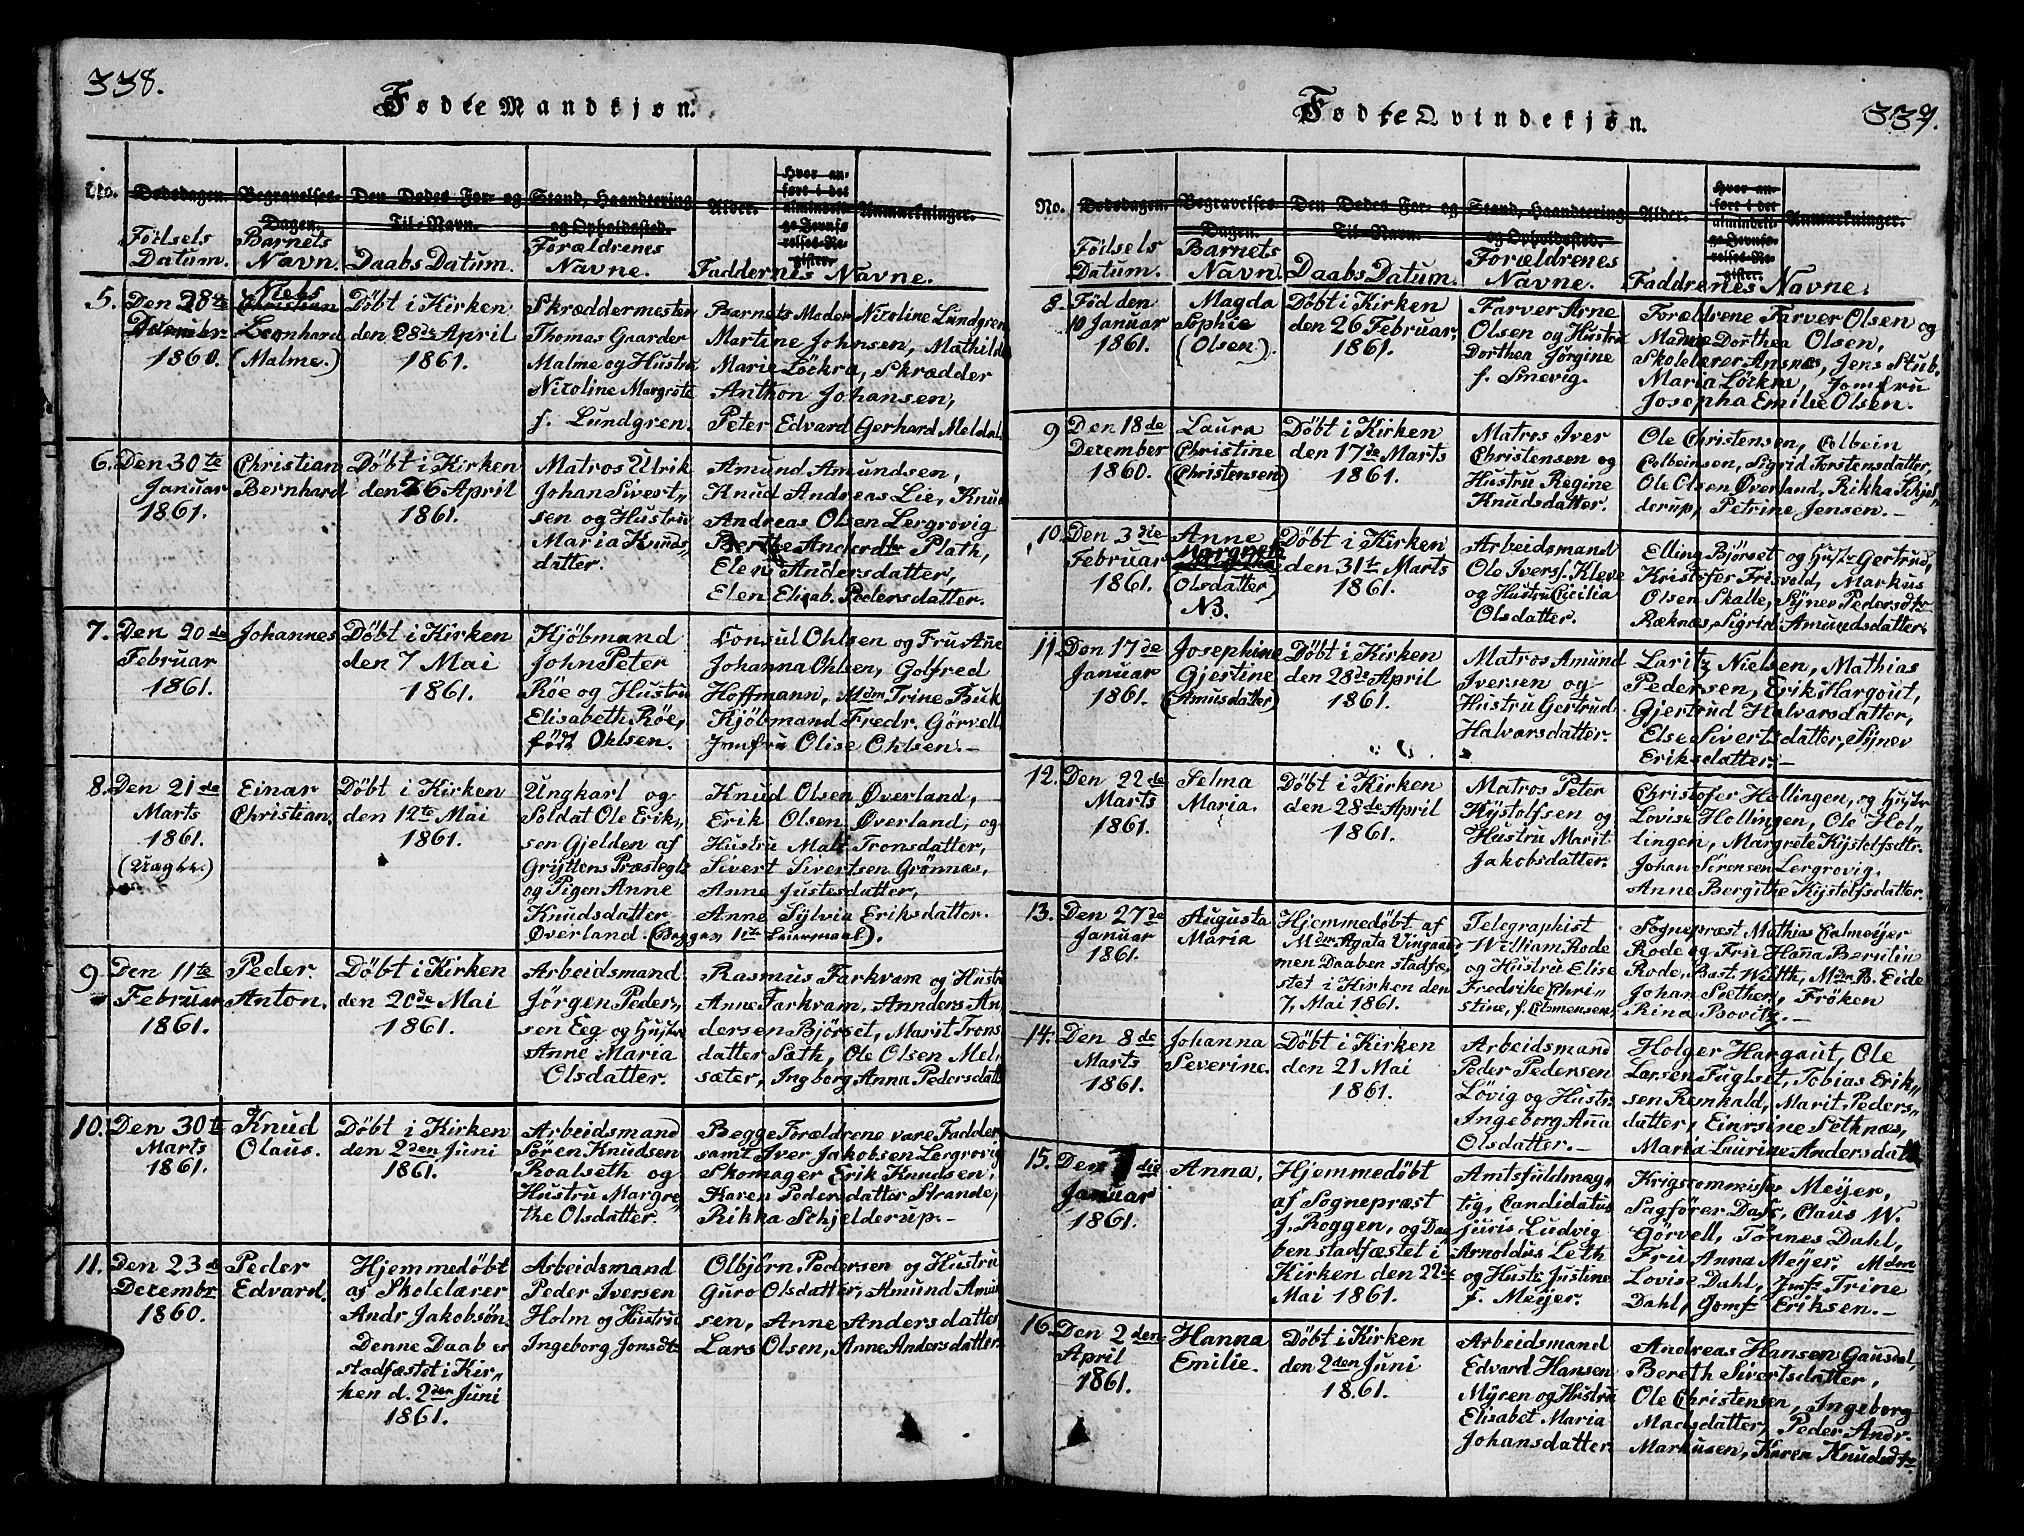 338.
Fødte Mandkjøn.
No.
Dødsdagen.
Begravelses-Dagen.
Den Dødes For- og Til-Navn.
Stand, Haandtering og Opholdssted.
Alder.
Hvor anført i det almindelige Jevnførelses-Register
Anmærkninger.
Födsels Datum.
Barnets Navn.
Daabs Datum.
Forældrenes Navne.
Faddernes Navne.
5. Den 28de
December
1860.
Niels
Christian
Leonhard
(Malme.)
Döbt i Kirken
den 28de April
1861.
Skræddermester
Thomas Gaarder
Malme og Hustru
Nicoline Margrete
f. Lundgren.
Barnets Moder Nicoline Lundgren
Martine Johnsen, Mathilde
Marie Löckra, Skrædder
Anthon Johansen,
Peter Edvard Gerhard Meldal.
6. Den 30te
Januar
1861.
Christian
Bernhard
Döbt i Kirken
den 26 April
1861.
Matros Ulrik
Johan Sivert„
sen og Hustru
Maria Knuds„
datter.
Amund Amundsen,
Knud Andreas Lie, Knud
Andreas Olsen Lergrovig
Berthe Andersdtr Plath,
Elen Andersdatter,
Elen Elisab. Pedersdatter.
7. Den 20de
Februar
1861.
Johannes
Döbt i Kirken
den 7 Mai
1861.
Kjöbmand
John Peter
Röe og Hustru
Elisabeth Röe,
født Ohlsen.
Consul Ohlsen og Fru Añe
Johanna Ohlsen, Golfred
Hoffmann, Mdm Trine Buck
Kjöbmand Fredr. Görvell
Jomfru Olise Ohlsen.—
8. Den 21de
Marts
1861.
(Uægte.)
Einar
Christian.
Döbt i Kirken
den 12te Mai
1861.
Ungkarl og
Soldat Ole Erik„
sen Gjelden af
Gryttens Præstegld
og Pigen Anne
Knudsdatter
Øverland. (Begges 1ste Leiermaal).
Knud Olsen Øverland,
Erik Olsen Øverland, og
Hustru Malt Tronsdatter,
Sivert Sivertsen Grönnæs,
Anne Justesdatter,
Anne Sylvia Eriksdatter.
9. Den 11te
Februar
1861.
Peder
Anton.
Döbt i Kirken
den 20de Mai
1861.
Arbeidsmand
Jörgen Peder„
sen Eeg og Hustru
Anne Maria
Olsdatter.
Rasmus Farkvam og Hustru
Anne Farkvam, Annders An„
dersen Björset, Marit Trons
datter Sæth, Ole Olsen Mel„
sæter, Ingborg Anna Pedersdatt
10. Den 30te
Marts
1861.
Knud
Olaus.
Döbt i Kirken
den 2den Juni
1861.
Arbeidsmand
Sören Knudsen
Roalseth og
Hustru Margre„
the Olsdatter.
Begge Forældrene vare Faddere
samt Iver Jakobsen Lergrovig
Skomager Erik Knudsen,
Karen Pedersdatter Strande,
Rikka Schjelderup.—
11. Den 23de
Decembr
1860.
Peder
Edvard.
Hjemmedöbt
af Skolelærer
Andr Jakobsön.
Denne Daab er
stadfæstet i Kir„
ken d. 2den Juni
1861.
Arbeidsmand
Peder Iversen
Holm og Hustru
Ingeborg Jonsdtr
Olbjörn Pedersen og Hustru
Guro Olsdatter, Amund Amund
sen, Anne Andersdatter
Lars Olsen, Anne Andersdatter.
339.
Fødte Qvindekjøn.
No.
Dødsdagen.
Begravelses-Dagen.
Den Dødes For- og Til-Navn.
Stand, Haandtering og Opholdssted.
Alder.
Hvor anført i det almindelige Jevnførelses-Register.
Anmærkninger.
Födsels Datum.
Barnets Navn
Daabs Datum.
Forældrenes Navne.
Faddrenes Navne.
8. Föd den
10 Januar
1861.
Magda
Sophie
(Olsen).
Döbt i Kirken
den 26 Februar.
1861.
Farver Arne
Olsen og Hustru
Dorthea Jörgine
f. Smevig.
Forældrene Farver Olsen og
Madme Dorthea Olsen,
Skolelærer Aasnæs, Jens Stub.
Maria Löckra, Jomfru
Josepha Emilie Olsen.
9 Den 18de
December
1860.
Laura
Christine
(Christensen)
Döbt i Kirken
den 17de Marts
1861.
Matros Iver
Christensen og
Hustru Regine
Knudsdatter.
Ole Christensen, Colbein
Colbeinsen, Sigrid Torstensdatter,
Ole Olsen Øverland, Rikka Schjel„
derup, Petrine Jensen.—
10. Den 3die
Februar
1861.
Anne
Margrete
(Olsdatter)
N3.
Döbt i Kirken
den 31te Marts
1861.
Arbeidsmand
Ole Iversf. Kleve
og Hustru Cicilia
Olsdatter.
Elling Björset og Hustr Gertrud,
Kristofer Frisvold, Markus
Olsen Skalle, Synev Pedersdtr
Ræknæs, Sigrid Amundsdatter.
11 Den 17de
Januar
1861.
Josephine
Gjertine
(Amusdatter)
Döbt i Kirken
den 28de April
1861.
Matros Amund
Iversen og
Hustru Gertrud
Halvarsdatter.
Laritz Nielsen, Mathias
Pedersen, Erik Hargout,
Gjertrud Halvarsdatter,
Else Sivertsdatter, Synev
Eriksdatter.—
12. Den 22de
Marts
1861.
Selma
Maria.
Döbt i Kirken
den 28de April
1861.
Matros Peter
Kystolfsen og
Hustru Marit
Jakobsdatter.
Christofer Hollingen, og Hustr
Lovise Hollingen, Ole Hol„
lingen, Margrete Kystolfsdtr.
Johan Sörensen Lergrovig,
Anne Bergithe Kystolfsdatter.
13. Den 27de
Januar
1861.
Augusta
Maria
Hjemmedöbt af
Mdm Agata Vingaard
men Daaben stadfæ„
stet i Kirken den
7. Mai 1861.
Telegraphist
William Rode
og Hustru Elise
Fredrike Chri„
stine, f. Clemensen,
Sognepræst Mathias Calmeyer
Rode og Fru Hana Berntin
Rode, Bast. Wiltth, Mdm B. Eide
Johan Sæther, Fröken
Rina Bovitz.—
14. Den 8de
Marts
1861.
Johanna
Severine.
Döbt i Kirken
den 21 Mai
1861.
Arbeidsmand
Peder Pedersen
Lövig og Hustr
Ingeborg Aña
Olsdatter.—
Holger Hargaut, Ole
Larsen Fuglset, Tobias Erik„
sen Remkald, Marit Peders„
datter, Einrsine Sethnæs,
Maria Laurine Andersdatt
15. Den 7die
Januar
1861.
Anna,
Hjemmedöbt
af Sognepræst
J. Roggen, og Daa
ben stadfæstet i
Kirken den 22de
Mai 1861.
Amtsfuldmæg„
tig, Candidatus
juris Ludvig
Arnoldus Leth
og Hustr Justine
f. Meyer.
Krigscommissær Meyer,
Sagförer Dass, Claus W.
Görvell, Tönnes Dahl,
Fru Anna Meyer, Mdm
Lovise Dahl, Jomfr Trine
Dahl, Jomf Eriksen.—
16. Den 2den
April
1861.
Hanna
Emilie.
Döbt i Kirken
den 2den Juni
1861.
Arbeidsmand
Edvard Hansen
Myren og Hustru
Elisabet Maria
Johansdatter
Andreas Hansen Gausdal,
Bereth Sivertsdatter,
Ole Christensen, Ingeborg
Madsdatter, Peder Andr.
Markusen, Karen Knudsdtr